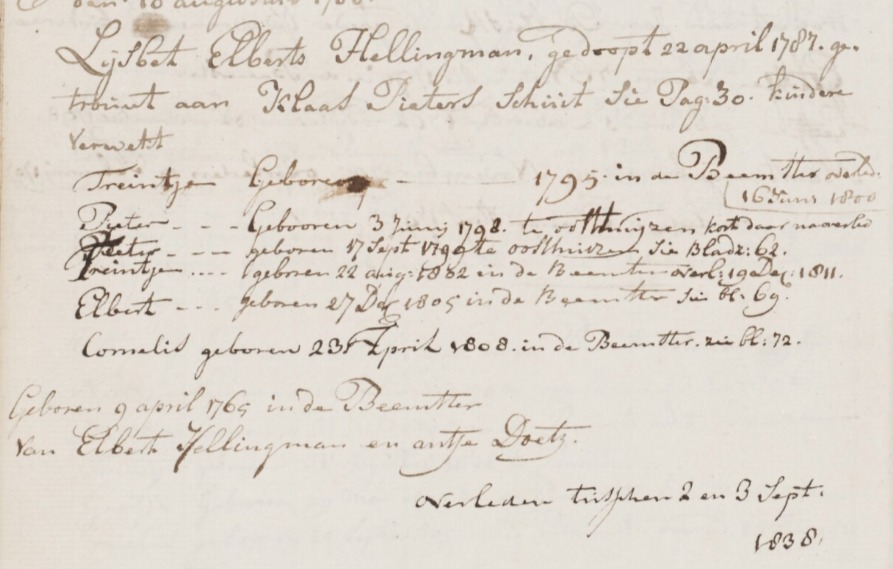 den 10 augustus 1788.
Lijsbet Elberts Hellingman, gedoopt 22 april 1787. ge.
trouwt aan Klaas Pieters Schuit Sie Pag: 30. kindere
verwekt
Treintje Geboren - - 1795. in de Beemster overled.
16 Juni 1800
Pieter - - - Gebooren 3 Junij 1798. te oosthuijzen kort daar na overled
Pieter - - - geboren 17 Sept 1799 te oosthuizen Sie Bladz: 62.
Treintje .... geboren 22 aug: 1802 in de Beemster overl: 19 Dec: 1811.
Elbert - - - geboren 27 Dec 1805 in de Beemster Sie bl: 69.
Cornelis geboren 23 April 1808. in de Beemster. zie bl: 72.
Geboren 9 april 1765 in de Beemster
van Elbert Hellingman en antje Doetz.
overleden tusschen 2 en 3 Sept:
1838.